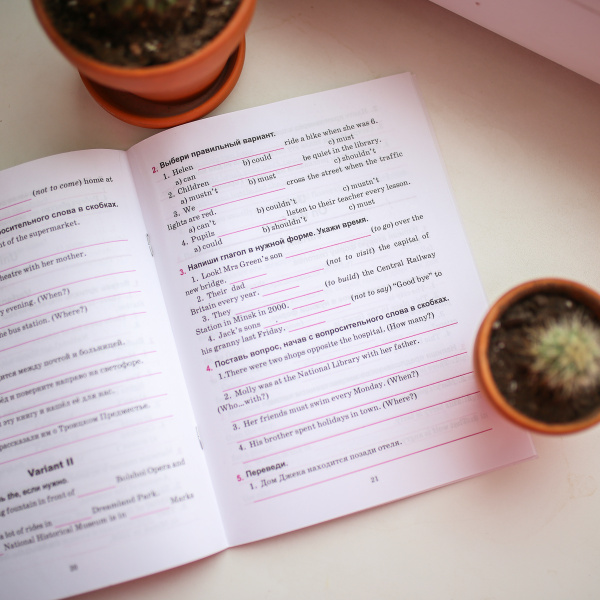 (not to come) home at
росительного слова в скобках.
nt of the supermarket.
heatre with her mother.
y evening. (When?)
he bus station. (Where?)
дится между почтой и больницей.
и поверните направо на светофоре.
эту книгу и нашёл её для нас.
рассказали им о Троицком Предместье.
Variant II
the, если нужно.
g fountain in front of ______ Bolshoi Opera and
a lot of rides in ______ Dreamland Park.
National Historical Museum is in ______ Marks
20
2. Выбери правильный вариант.
1. Helen ______ ride a bike when she was 6.
a) can b) could c) must
2. Children ______ be quiet in the library.
a) mustn't b) must c) shouldn't
3. We ______ cross the street when the traffic
lights are red.
a) can't b) couldn't c) mustn't
4. Pupils ______ listen to their teacher every lesson.
a) could b) shouldn't c) must
3. Напиши глагол в нужной форме. Укажи время.
1. Look! Mrs Green's son ______ (to go) over the
new bridge. ______
2. Their dad ______ (not to visit) the capital of
Britain every year. ______
3. They ______ (to build) the Central Railway
Station in Minsk in 2000. ______
4. Jack's sons ______ (not to say) “Good bye” to
his granny last Friday. ______
4. Поставь вопрос, начав с вопросительного слова в скобках.
1. There were two shops opposite the hospital. (How many?)
2. Molly was at the National Library with her father.
(Who...with?)
3. Her friends must swim every Monday. (When?)
4. His brother spent holidays in town. (Where?)
5. Переведи.
1. Дом Джека находится позади отеля.
21